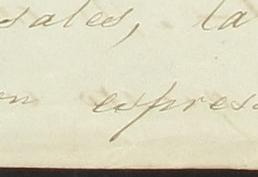 sales, la
on expres